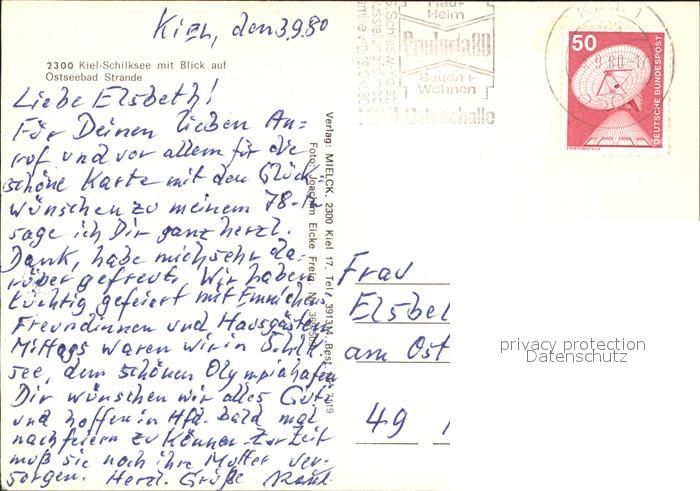 Kiel, den 3.9.80
2300 Kiel-Schilksee mit Blick auf
Ostseebad Strande
Liebe Elsbeth!
Für Deinen lieben An-
ruf und vor allem für die
schöne Karte mit den Glück-
wünschen zu meinem 78-
sage ich Dir ganz herzl.
Dank, habe mich sehr da-
rüber gefreut. Wir haben
tüchtig gefeiert mit
Freundinnen und Hausgästen
Mittags waren wir in Schilk-
see, dem schönen Olympiahafen
Dir wünschen wir alles Gute
und hoffen in Hfd. bald mal
nachfeiern zu können. Zur Zeit
muß sie noch ihre Mutter ver-
sorgen. Herzl. Grüße
Verlag: MIELCK, 2300 Kiel 17, Tel. 391314 Best.
Foto: Joachim Eicke Freig. Nr.
Haus+
Heim
Producta80
Bauen+
Wohnen
Ostseehalle
KIEL 1
9.80-1
50
DEUTSCHE BUNDESPOST
ERDEFUNKSTELLE
Frau
Elsbe
am Ost
49
privacy protection
Datenschutz